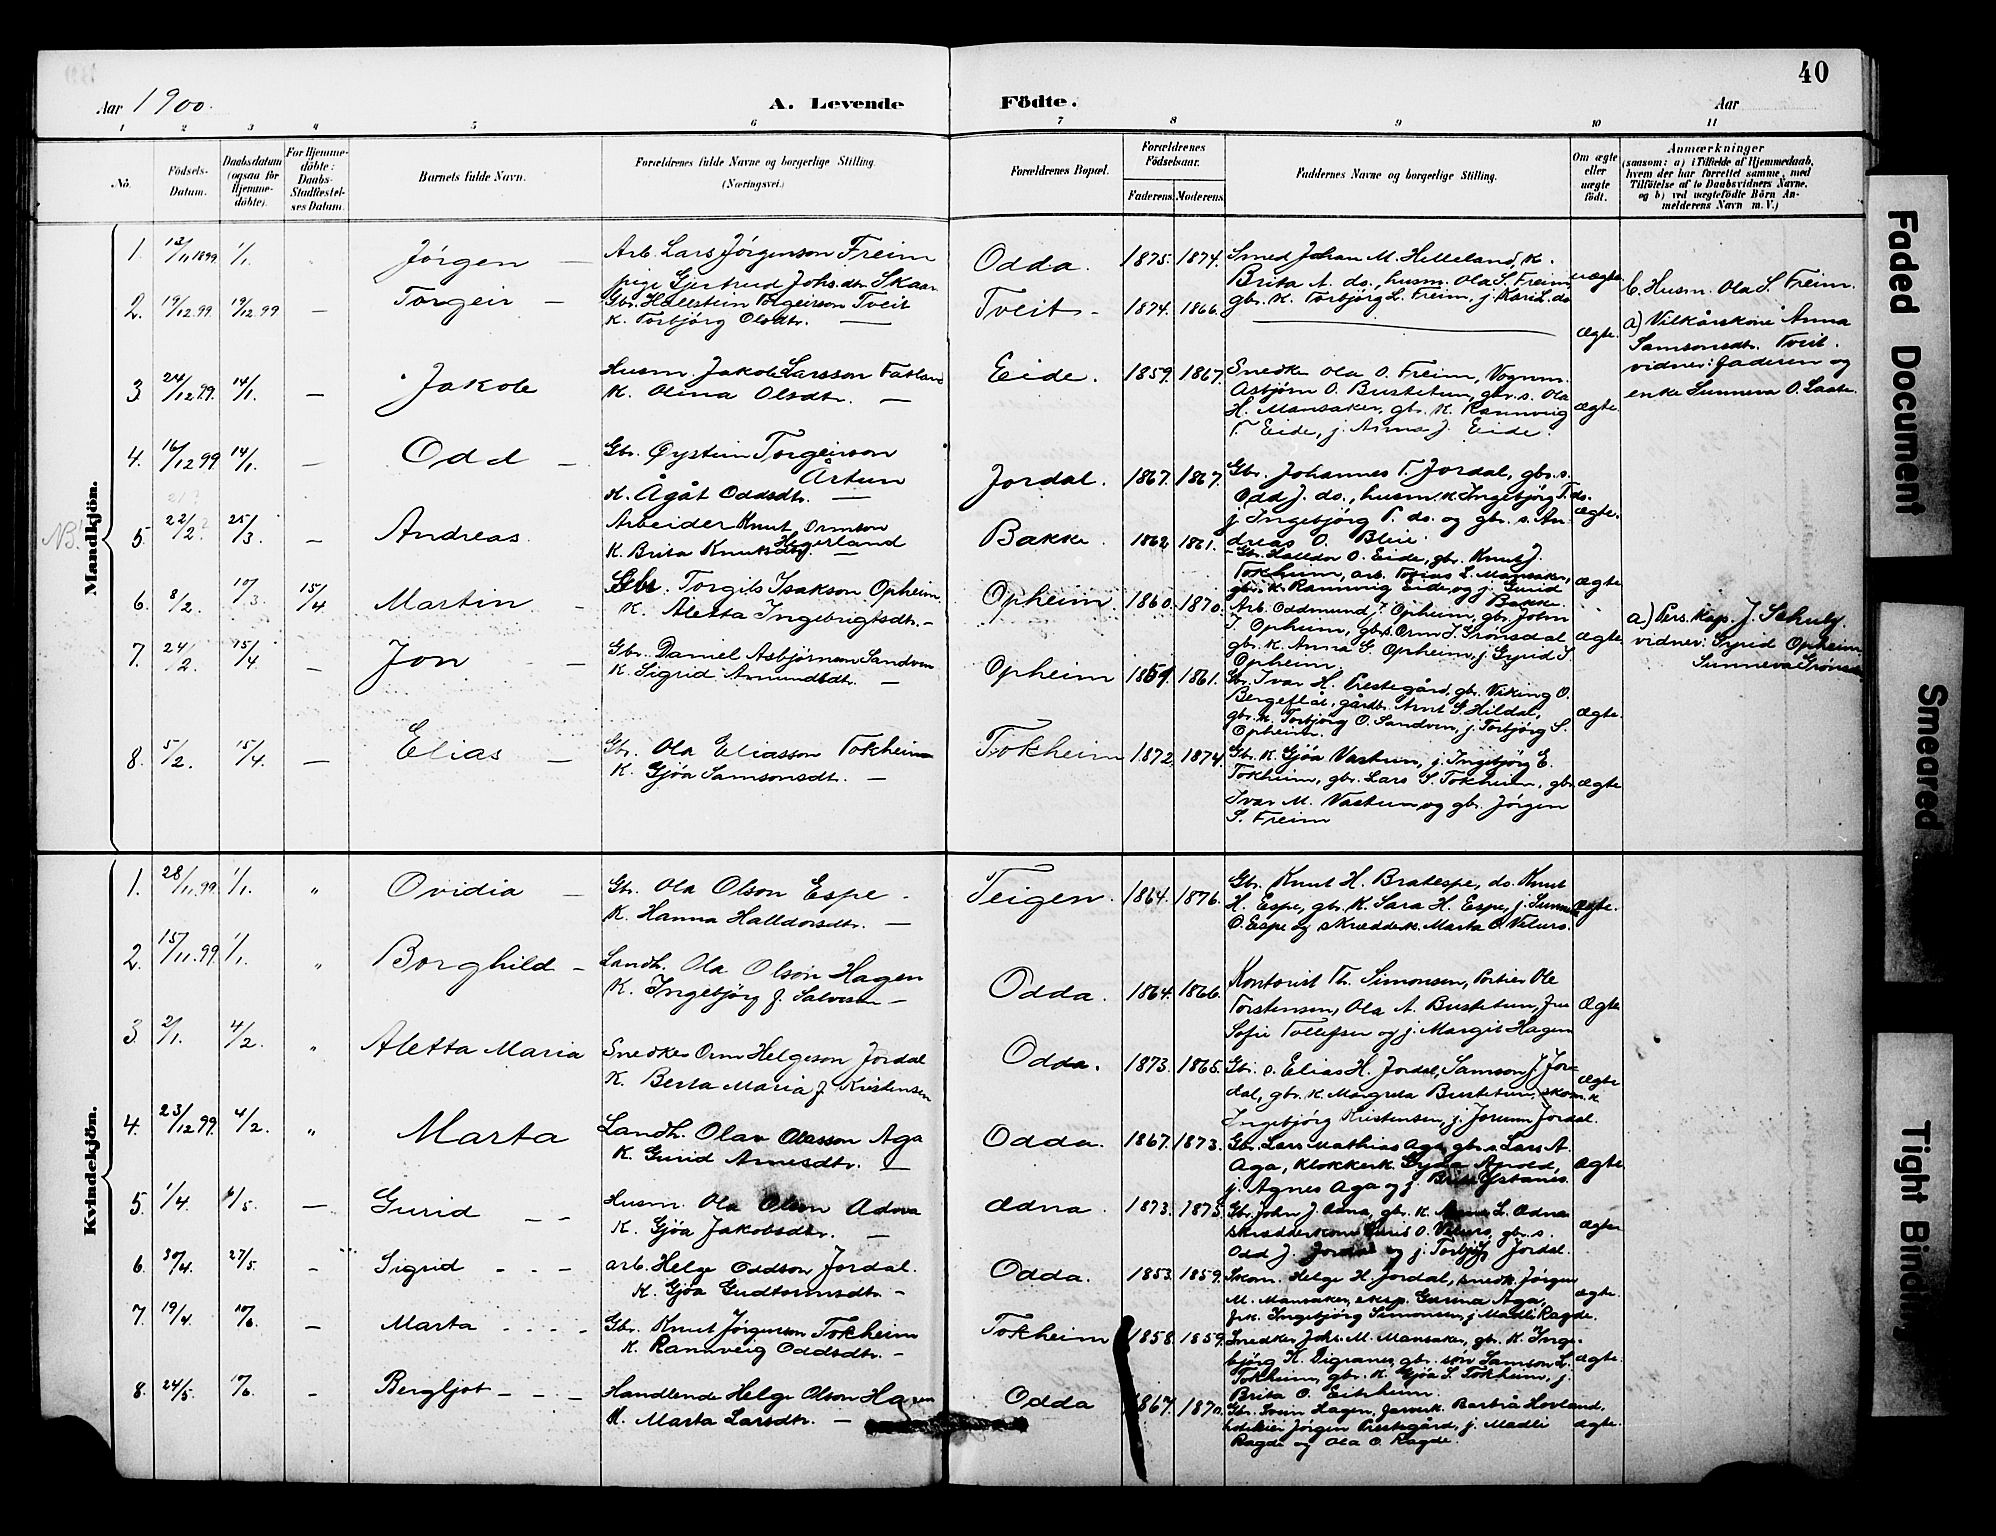 40
Aar 1900. A. Levende Födte. Aar
1 2 3 4 5 6 7 8 9 10 11
No.
Födsels-Datum.
Daabsdatum (ogsaa for Hjemme-döbte).
For Hjemme-döbte: Daabs-Stadfæstel-ses Datum.
Barnets fulde Navn.
Forældrenes fulde Navne og borgerlige Stilling. (Næringsvei.)
Forældrenes Bopæl.
Forældrenes Födselsaar.
Faderens Moderens
Faddernes Navne og borgerlige Stilling.
Om ægte eller uægte födt.
Anmærkninger
(saasom: a) i Tilfælde af Hjemmedaab,
hvem der har forrettet samme, med
Tilföielse af to Daabsvidners Navne,
og b) ved uægtefödte Börn An-
melderens Navn m. V.)
Mandkjön.
1. 12/11 1899 1/1. Jörgen — Arb. Lars Jörgenson Freim
pige Gjertrud Johs.dtr. Skaar
Odda. 1875. 1874. Smed Johan M. Helleland, k.
Brita A. ds., husm. Ola S. Freim,
gbr. k. Torbjörg L. Freim, j. Kari L. ds
uægte b. Husm. Ola S. Freim.
2. 19/12 99. 19/12 99 — Torgeir — Gbr. Hallstein Torgeirson Tveit
K. Torbjörg Olsdtr. —
Tveit - 1874. 1866. Ægte.
a) Vilkårskone Anna
Samsonsdtr. Tveit.
vidner: faderen og
enke Sunneva O. Laate.
3 24/12 99. 14/1. — Jakob Husm. Jakob Larsson Fatland
K. Olina Olsdtr. —
Eide. 1859. 1867. Snedker Ola O. Freim, Vognm.
Asbjørn O. Bustetun, gbr. s. Ola
H. Mansaker, gbr. k. Rannveig
T. Eide, j. Anna J. Eide.
ægte.
4. 16/12 99 14/1. — Odd — Gbr. Øystein Torgeirson
Årtun
K. Ågåt Oddsdtr. —
Jordal. 1867. 1867. Gbr. Johannes T. Jordal, gbr. s.
Odd J. ds., husm. k. Ingebjørg T. ds.
j. Ingebjörg T. ds. og gbr. s. An-
dreas O. Bleie.
ægte.
NB!
5. 22/2. 25/3. — Andreas. Arbeider Knut Ormson
Hegerland
K. Brita Knutsdtr. —
Bakke. 1862 1861. Gbr. Halldor O. Eide, gbr. Knut J.
Tokheim, arb. Tobias L. Mansaker,
gbr. k. Rannveig Eide, og j. Gurid
Bakke.
ægte
6. 8/2. 10/3. 15/4 Martin — Gbr. Torgils Isakson Opheim
K. Aletta Ingebrigtsdtr. -
Opheim. 1860. 1870. Arb. Oddmund J. Opheim, gbr. John
J. Opheim, gbr. s. Orm J. Grönsdal
gbr. k. Anna G. Opheim, j. Gyrid S.
Opheim.
ægte
a) Pers. Kap. J. Schulz.
vidner: Gyrid Opheim
Sunneva Grønsdal
7. 24/2. 15/4. — Jon — Gbr. Daniel Asbjörnson Sandven
K. Sigrid Amundsdtr. —
Opheim 1859. 1861. Gbr. Ivar H. Prestegård, gbr. Viking O.
Bergeflåt, gårdbr. Arnt S. Hildal,
gbr. k. Torbjörg O. Sandven, j. Torbjörg S.
Opheim.
ægte.
8. 5/2. 15/4. — Elias — Gbr. Ola Eliasson Tokheim
K. Gjöa Samsonsdtr. —
Tokheim 1872 1874 Gbr. K. Gjöa Vastun, j. Ingebjörg E.
Tokheim, gbr. Lars S. Tokheim, gbr.
Ivar M. Vastun og gbr. Jörgen
S. Freim
ægte
Kvindekjön.
1. 28/11. 99. 1/1. " Ovidia — Gbr. Ola Olson Espe.
K. Hanna Halldorsdtr. —
Teigen. 1864. 1876. Gbr. Knut H. Bratespe, ds. Knut
H. Espe, gbr. K. Sara H. Espe, j. Sunneva
O. Espe og skrædderk. Marta O. Vilurs.
ægte.
2. 15/11. 99. 1/1. " Borghild — Landh. Ola Olson Hagen
K. Ingebjörg f. Salvesen —
Odda. 1864. 1866. Kontorist Th. Simonsen, Portier Ole
Torstensen, Ola A. Bustetun, fru
Sofie Tollefsen og j. Margit Hagen
Ægte
3. 2/1. 4/2. " Aletta Maria Snedker Orm Helgeson Jordal
K. Berta Maria f. Kristensen
Odda. 1873. 1865. Gbr. s. Elias H. Jordal, Samson J. Jor-
dal, gbr. k. Margreta Bustetun, skom. k.
Ingebjörg Kristensen, j. Jorunn Jordal.
Ægte
4. 23/12 99. 4/2. " Marta Landh. Olav Olasson Aga
K. Gurid Arnesdtr. —
Odda. 1867. 1873. Gbr. Lars Mathias Aga, gbr. s. Lars A.
Aga, Klokkerk. Gyda Apold,
j. Agnes Aga og j. Brita Ystanes.
ægte
5. 1/4. 6/5. — Gurid - - Husm. Ola Olson Adna
K. Gjöa Jakobsdtr. —
Ædna. 1873. 1875. Gbr. John J. Ædna, gbr. K. L. Ædna
skrædderkone O. Vilurs, gbr. s.
Odd J. Jordal og j. Torbjörg Jordal.
ægte
6. 30/4. 27/5. - Sigrid - - - arb. Helge Oddson Jordal.
K. Gjöa Gudtormsdtr. -
Odda. 1853. 1859. Skom. Helge H. Jordal, snedk. Jörgen
M. Mansaker, eksp. Aga,
frk. Ingebjörg Simonsen, j. Madli Ragde.
ægte.
7. 19/4. 10/6. — Marta - - - - Gbr. Knut Jörgenson Tokheim
K. Rannveig Oddsdtr. -
Tokheim 1858. 1859. Snedker Johs. M. Mansaker, gbr. K. Inge-
björg K. Digranes, gbr. sön Samson L.
Tokheim, gbr. K. Gjöa S. Tokheim, j.
Brita O. Eitrheim.
ægte.
8. 24/5. 17/6. - Bergljot - - - Handlende Helge Olson Hagen
K. Marta Larsdtr. —
Odda 1867. 1870. Gbr. Svein Hagen, Barbrå Hovland,
Jörgen Prestegård, j. Madli
Ragde og Ola O. Ragde.
ægte.
Faded Document
Smeared
Tight Binding